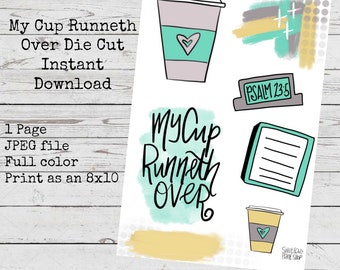 My Cup Runneth
Over Die Cut
Instant
Download
1 Page
JPEG file
Full color
Print as an 8x10
PSALM 23:5
My Cup
Runneth
Over